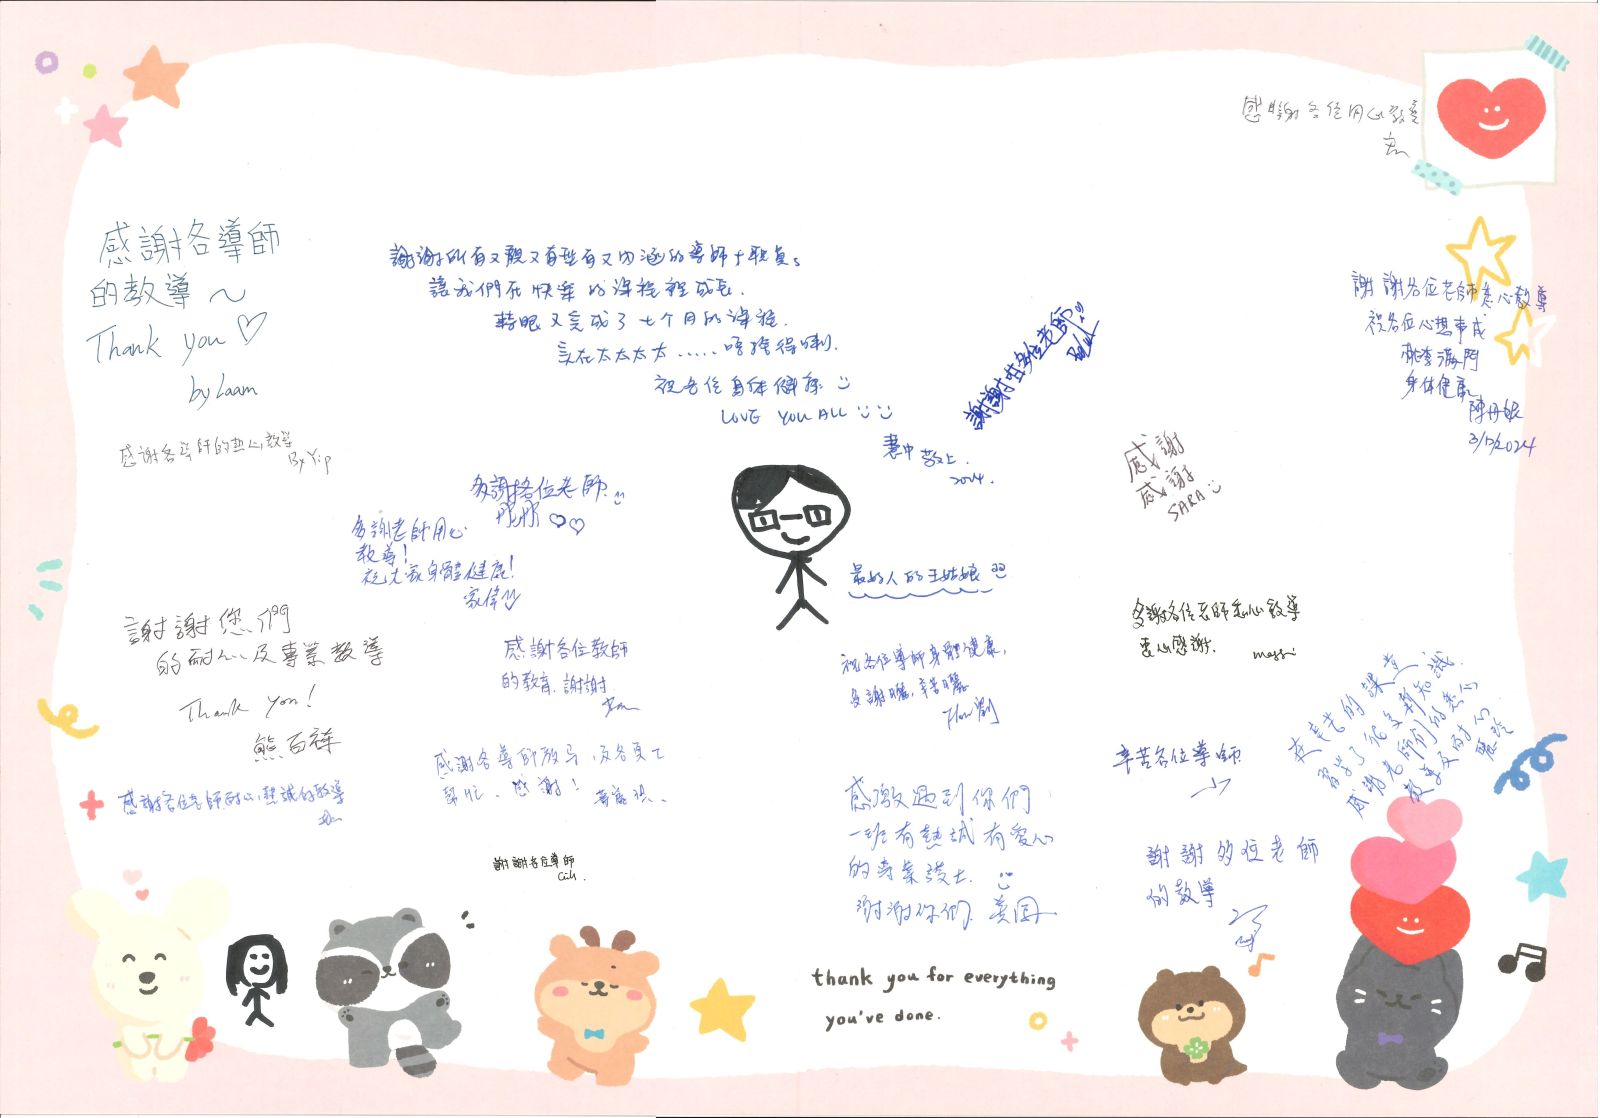 感謝各位用心教導
感謝各導師
的教導～
Thank you♡
by Laam
謝謝所有又靚又有型有又內涵的導師+職員。
讓我們在快樂的課程裡成長.
轉眼又完成了七个月的課程.
實在太太太太.....唔捨得喇.
祝各位身体健康
LOVE YOU ALL
慧中 敬上.
2024.
謝謝各位老師悉心教導
祝各位心想事成
桃李滿門
身体健康
3/12/2024
感謝各導師的热心教導
By Yip
謝謝各位老師
感謝
感謝
SARA
多謝各位老師
彤彤♡♡
多謝老師用心
教導!
祝大家身體健康!
家偉
最好人的王姑娘
謝謝您們
的耐心及專業教導
Thank you!
熊百祥
感謝各位教師
的教育.謝謝
祝各位導師身體健康,
多謝曬,辛苦曬.
多謝各位老師悉心教導
衷心感謝.
messi
感謝各導師教导,及各員工
幫忙、感謝!
辛苦各位導師
的課堂
習學了很多新知識
感謝老師們的悉心
教導及耐心
感謝各位老師耐心熱誠的教導
感激遇到你們
一班有熱誠有愛心
的專業護士.
謝謝你們.
謝謝各位導師
謝謝各位老師
的教導
thank you for everything
you've done.